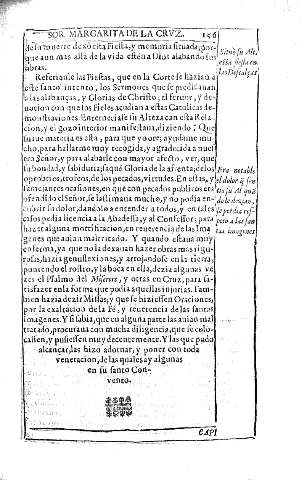 SOR MARGARITA DE LA CRVZ. 156
de su muerte desta Fiesta, y memoria situada; por-
que aun mas allà de la vida estèn a Dios alabando sus
obras.
Referianle las Fiestas, que en la Corte se hazian a
este santo intento, los Sermones que se predicauan
las alabanças, y Glorias de Christo, el feruor, y de-
uocion con que los Fieles acudian a estas Catolicas de-
monstraciones. Enterneciase su Alteza con esta Rela-
cion, y el gozo interior manifestaua, diziendo: Que
suaue materia es esta, para que yo ore; ayudame mu-
cho, para hallarme muy recogida, y agradecida a nues-
tro Señor, y para alabarle con mayor afecto, ver, que
su bondad, y sabiduria, saquè Gloria de la afrenta; de los
oprobrios, trofeos, de los pecados, virtudes. En estas, y
semejantes ocasiones, en que con pecados publicos era
ofendido el Señor, se lastimaua mucho, y no podia en-
cubrir su dolor, dandole a entender a todos, y en tales
casos pedia licencia a la Abadessa, y al Confessor; para
hazer alguna mortificacion, en reuerencia de las Ima-
genes que auian maltratado. Y quando estaua muy
enferma, ya que no la dexauan hazer obras mas rigu-
rosas, hazia genuflexiones, y arrojandose en la tierra,
poniendo el rostro, y la boca en ella, dezia algunas ve-
zes el Psalmo del Miserere, y otras en Cruz, para sa-
tisfazer en la forma que podia aquellas injurias. Tam-
bien hazia dezir Missas, y que se hiziessen Oraciones,
por la exaltacion de la Fè, y reuerencia de las santas
imagenes. Y si sabia, que en alguna parte las auian mal
tratado, procuraua con mucha diligencia, que se colo-
cassen, y pusiessen muy decentemente. Y las que pudo
alcançar, las hizo adornar, y poner con toda
veneracion, de las quales ay algunas
en su santo Con-
vento.
CAPI
Sitùa su Alt.
essa fiesta en
las Descalças
Era notable
el dolor q̃ sen
tia su Al. quã
do le dezian,
se perdia res-
peto a las san
tas imagenes